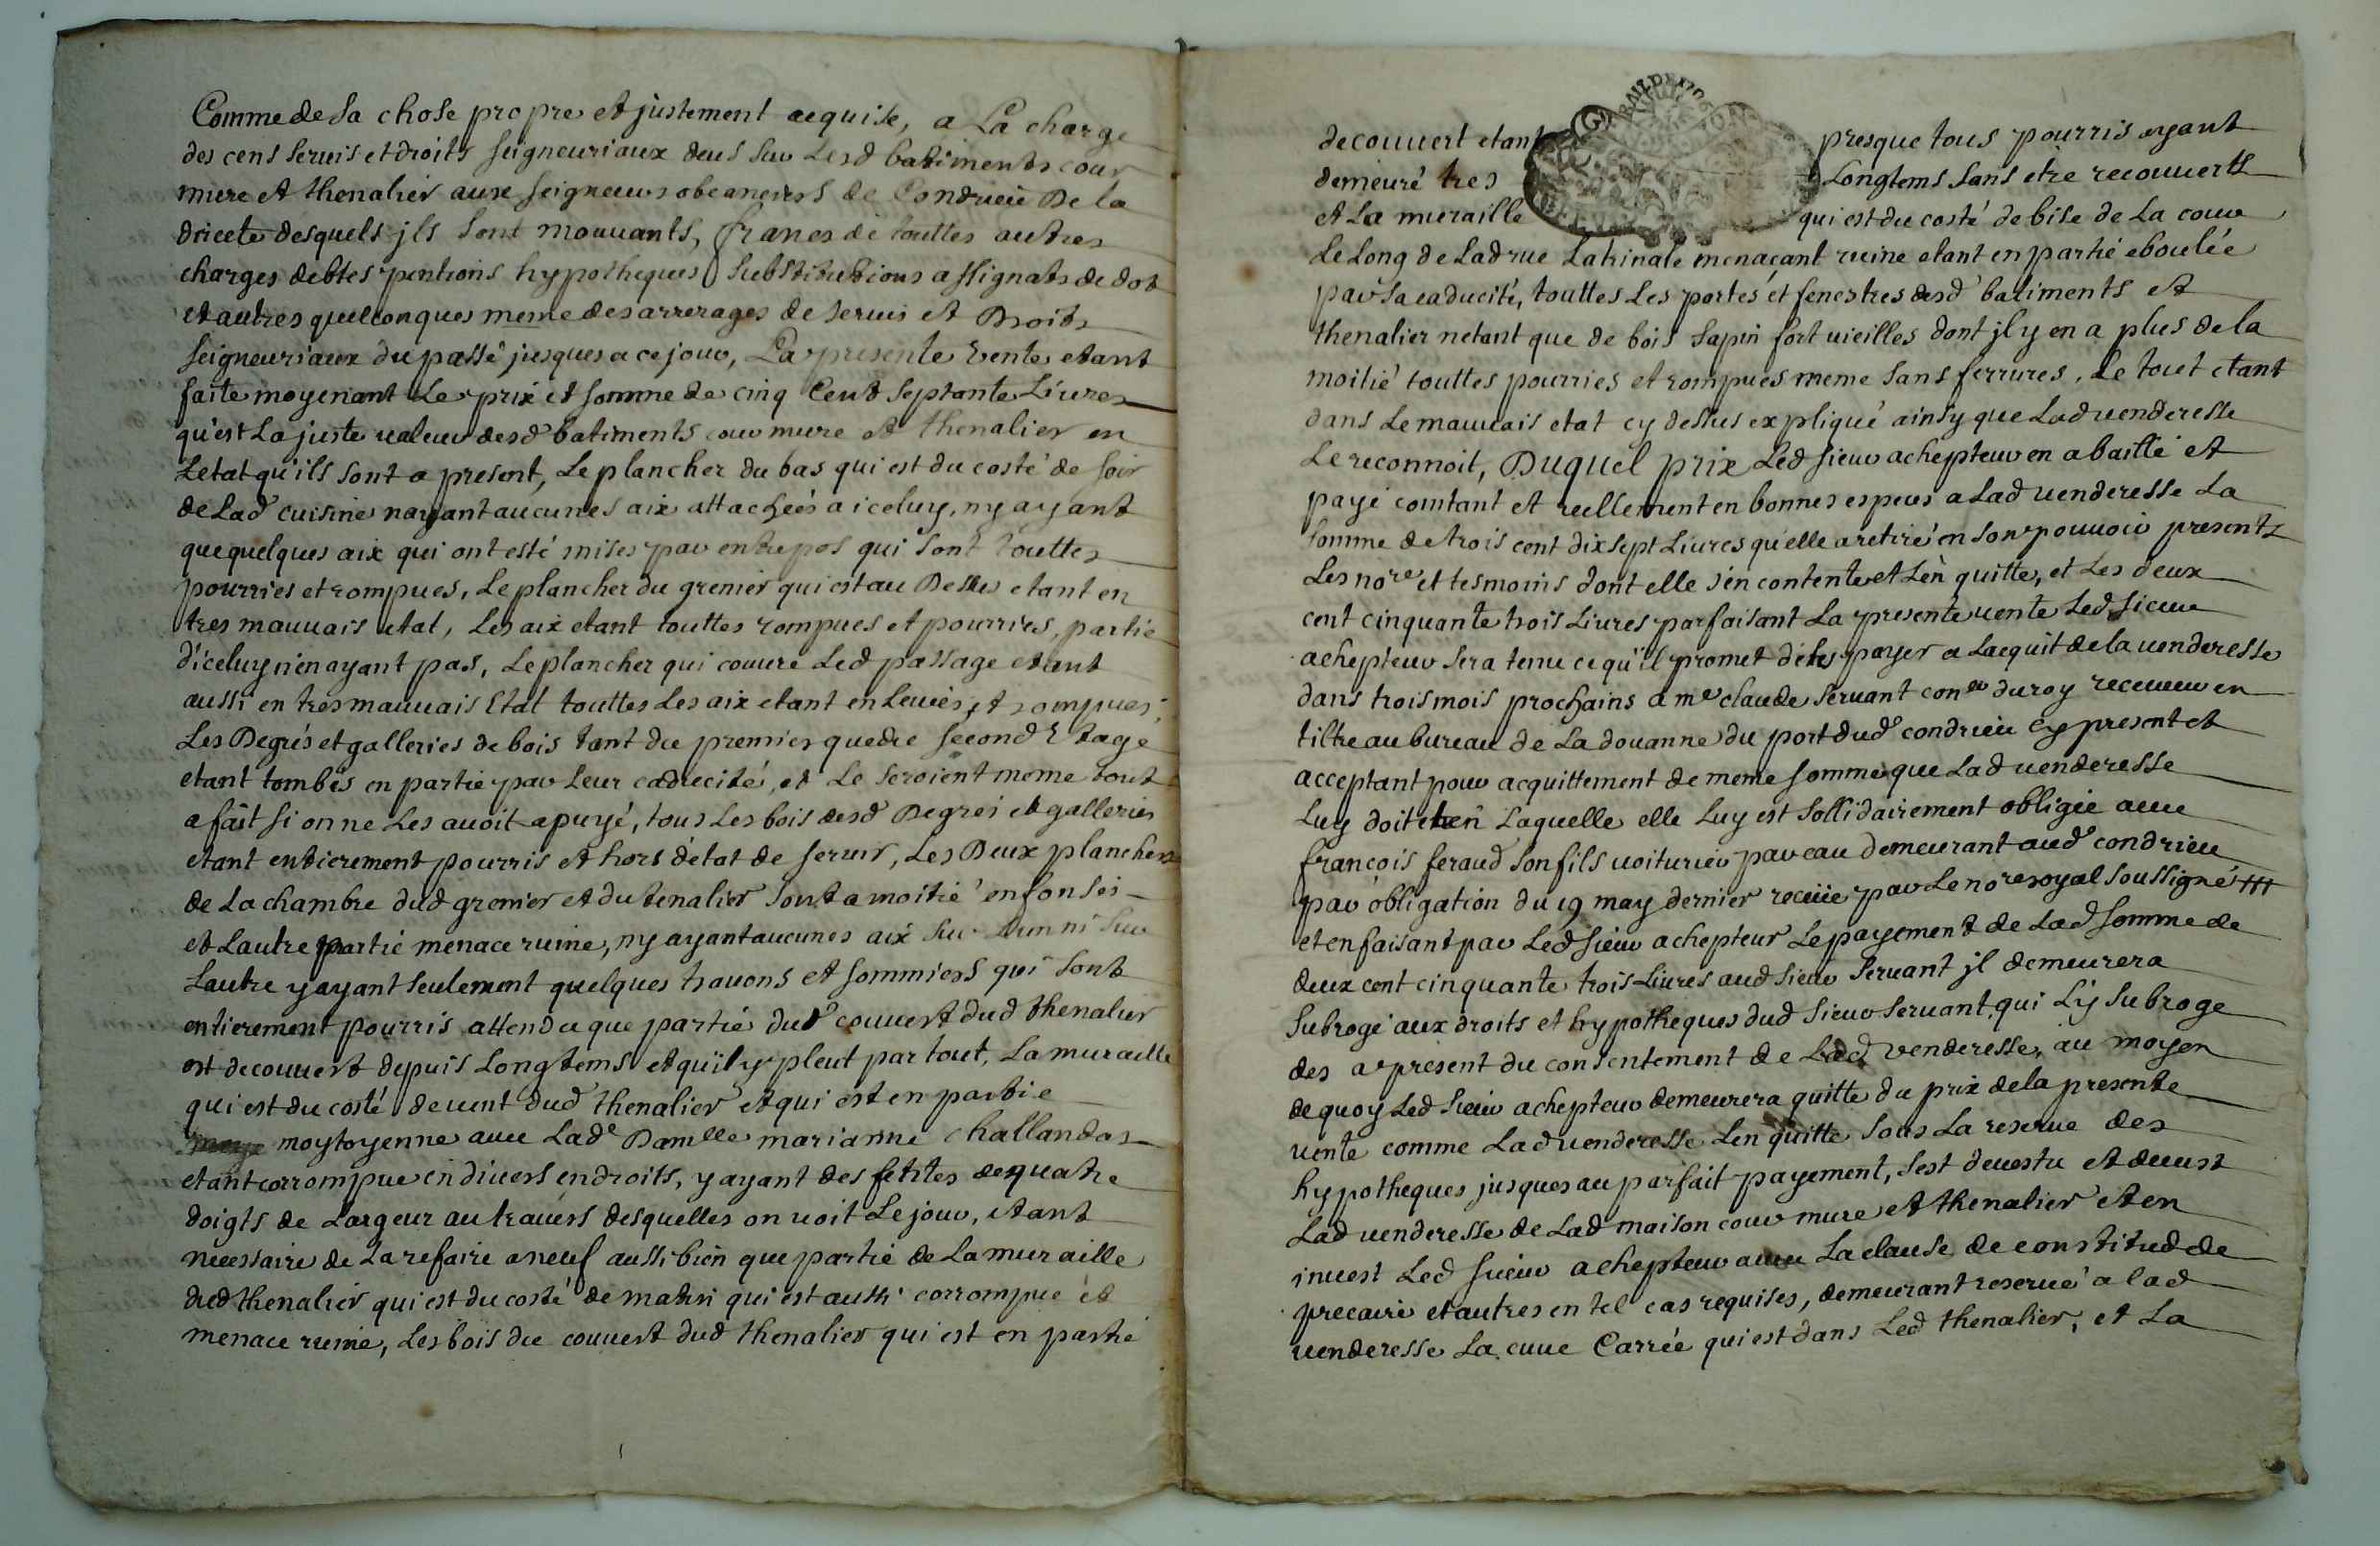 Comme de sa chose propre et justement acquise, a La charge
des cens servis et droits seigneuriaux deus sur Lesd batiments cour
mure et thenalier aux seigneurs obeanciers de Condrieu De la
directe desquels jls sont mouuants, francs de touttes autres
charges debtes pentions hypotheques substitutions assignats de dot
et autres quelconques meme des arrerages de seruis et Droits
seigneuriaux du passé jusques a ce jour, La presente vente etant
faite moyenant Le prix et somme de cinq Cent septante Liures
qu'est La juste ualeur desd batiments cour mure et thenalier en
Letat qu'ils sont a present, Le plancher du bas qui est du costé de soir
de Lad cuisine nayant aucunes aix attachées a iceluy, ny ayant
que quelques aix qui ont esté mises par entrepos qui sont touttes
pourries et rompues, Le plancher du grenier qui est au Dessus etant en
tres mauuais etat, Les aix etant touttes rompues et pourries, partie
d'iceluy n'en ayant pas, Le plancher qui couure Led passage etant
aussi en tres mauuais Etat touttes Les aix etant enleuées et rompues,
Les Degrés et galleries de bois tant du premier que du second Etage
etant tombés en partie par Leur caducité, et Le seroient meme tout
a fait si on ne Les auoit apuyé, tous Les bois desd Degrés et galleries
etant entierement pourris et hors d'etat de seruir, Les Deux planchers
de La chambre dud grenier et du tenalier sont a moitié enfonsés
et Lautre partie menace ruine, ny ayant aucunes aix sur Lun ni sur
Lautre y ayant seulement quelques trauons et sommiers qui sont
entierement pourris attendu que partie dud couuert dud thenalier
est decouuert depuis Longtems et qu'il y pleut par tout, La muraille
qui est du costé de uent dud thenalier et qui est en partie
moytoyenne auec Lade Damlle marianne challandas
etant corrompue en diuers endroits, y ayant des fetites de quatre
doigts de Largeur au trauers desquelles on uoit Le jour, etant
necessaire de La refaire a neuf aussi bien que partie de La muraille
dud thenalier qui est du costé de matin qui est aussi corrompue et
menace ruine, Les bois du couuert dud thenalier qui est en partie
decouuert etant presque tous pourris ayant
demeuré tres Longtems sans etre recouuerts
et La muraille qui est du costé de bise de La cour
Le Long de Lad rue Latrinale menaçant ruine etant en partie eboulée
par sa caducité, touttes Les portes et fenestres desd batiments et
thenalier netant que de bois sapin fort uieilles dont jl y en a plus de la
moitié touttes pourries et rompues meme sans ferrures, Le tout etant
dans Le mauuais etat cy dessus expliqué ainsy que Lad uenderesse
Le reconnoit, Duquel prix Led sieur achepteur en a baillé et
payé comtant et reellement en bonnes especes a Lad uenderesse La
somme de trois cent dixsept Liures qu'elle a retiré en son pouuoir presents
Les nore et tesmoins dont elle s'en contente et L'en quitte, et Les deux
cent cinquante trois Liures parfaisant La presente uente Led sieur
achepteur sera tenu ce qu'il promet de les payer a Lacquit de la uenderesse
dans trois mois prochains a me claude seruant coner du roy receueur en
tiltre au bureau de La douanne du port dud condrieu cy present et
acceptant pour acquittement de meme somme que Lad uenderesse
Luy doit et en Laquelle elle Luy est sollidairement obligée auec
françois feraud son fils uoiturier par eau demeurant aud condrieu
par obligation du 19 may dernier receüe par Le nore royal soussigné
et en faisant par Led sieur achepteur Le payement de Lad somme de
deux cent cinquante trois Liures aud sieur seruant jl demeurera
subrogé aux droits et hypotheques dud sieur seruant, qui L'y subroge
des a present du consentement de Lad venderesse, au moyen
de quoy Led sieur achepteur demeurera quitte du prix de la presente
uente comme Lad uenderesse L'en quitte sous La reserue des
hypotheques jusques au parfait payement, s'est deuestu et deuest
Lad uenderesse de Lad maison cour mure et thenalier et en
inuest Led sieur achepteur auec La clause de constitud de
precaire et autres en tel cas requises, demeurant reserué a lad
uenderesse La cuue Carrée qui est dans Led thenalier, et La